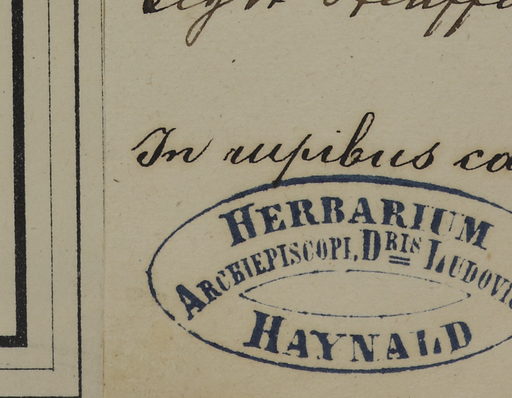 In rupibus ca
HERBARIUM
ARCHIEPISCOPI, DRIS LUDOVIC
HAYNALD